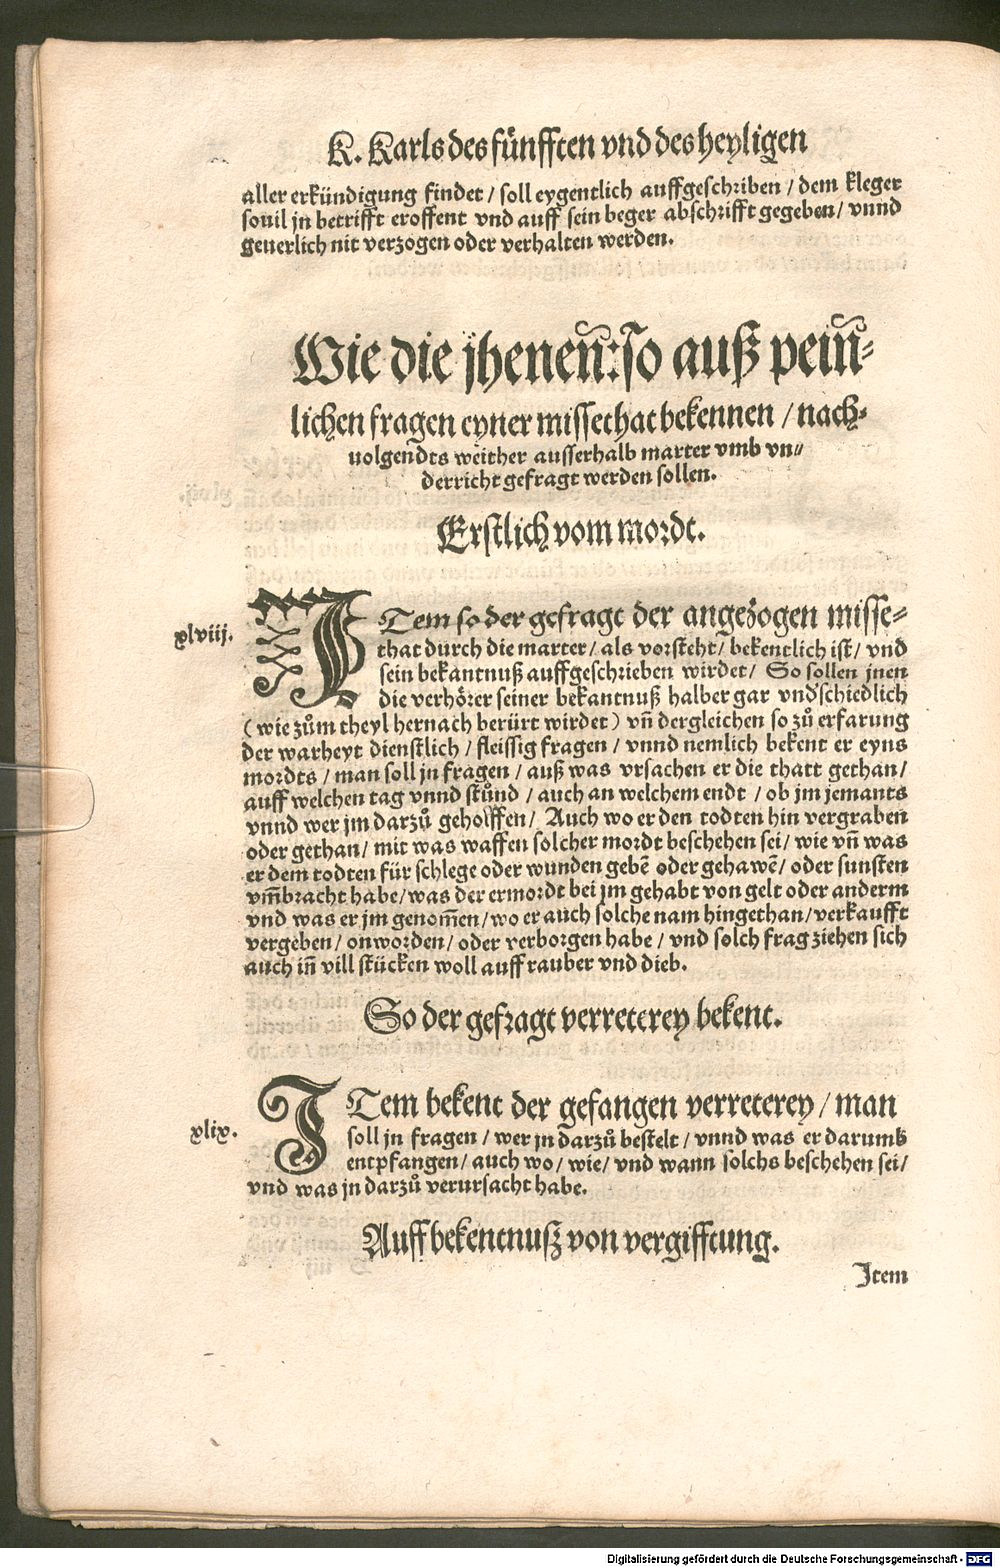 K. Karls des fünfften vnd des heyligen
aller erkündigung findet / soll eygentlich auffgeschriben / dem kleger
souil jn betrifft eroffent vnd auff sein beger abschrifft gegeben / vnnd
geuerlich nit verzogen oder verhalten werden.
Wie die jhenen: so auß pein-
lichen fragen eyner missethat bekennen / nach-
uolgendts weither ausserhalb marter vmb vn-
derricht gefragt werden sollen.
Erstlich vom mordt.
xlviij. ITem so der gefragt der angezogen misse-
that durch die marter / als vorsteht / bekentlich ist / vnd
sein bekantnuß auffgeschrieben wirdet / So sollen jnen
die verhörer seiner bekantnuß halber gar vndschiedlich
( wie zům theyl hernach berürt wirdet ) vñ dergleichen so zů erfarung
der warheyt dienstlich / fleissig fragen / vnnd nemlich bekent er eyns
mordts / man soll jn fragen / auß was vrsachen er die thatt gethan /
auff welchen tag vnnd stůnd / auch an welchem endt / ob jm jemants
vnnd wer jm darzů geholffen / Auch wo er den todten hin vergraben
oder gethan / mit was waffen solcher mordt beschehen sei / wie vñ was
er dem todten für schlege oder wunden gebē oder gehawē / oder sunsten
vm̃bracht habe / was der ermordt bei jm gehabt von gelt oder anderm
vnd was er jm genom̃en / wo er auch solche nam hingethan / verkaufft
vergeben / onworden / oder verborgen habe / vnd solch frag ziehen sich
auch iñ vill stücken woll auff rauber vnd dieb.
So der gefragt verreterey bekent.
xlix. ITem bekent der gefangen verreterey / man
soll jn fragen / wer jn darzů bestelt / vnnd was er darumb
entpfangen / auch wo / wie / vnd wann solchs beschehen sei /
vnd was jn darzů verursacht habe.
Auff bekentnuß von vergifftung.
Item
Digitalisierung gefördert durch die Deutsche Forschungsgemeinschaft - DFG